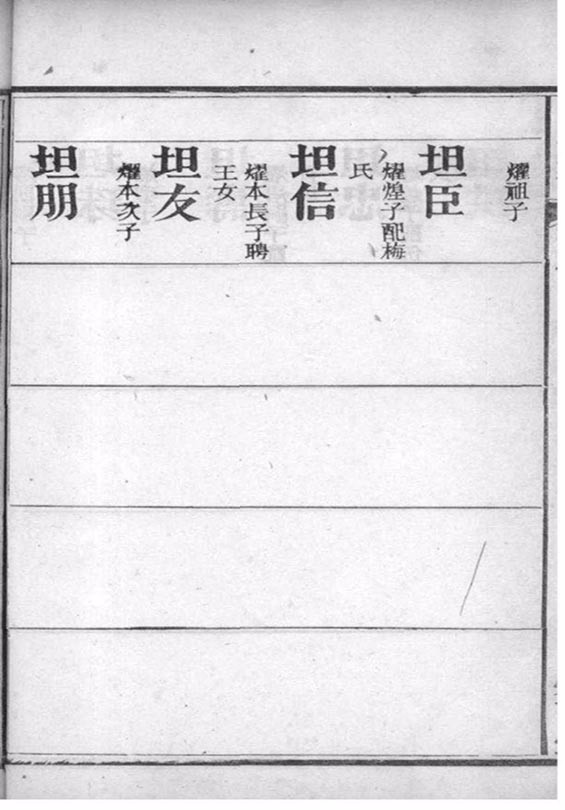 燿祖子
坦臣
燿煌子配梅
氏
坦信
燿本長子聘
王女
坦友
燿本次子
坦朋